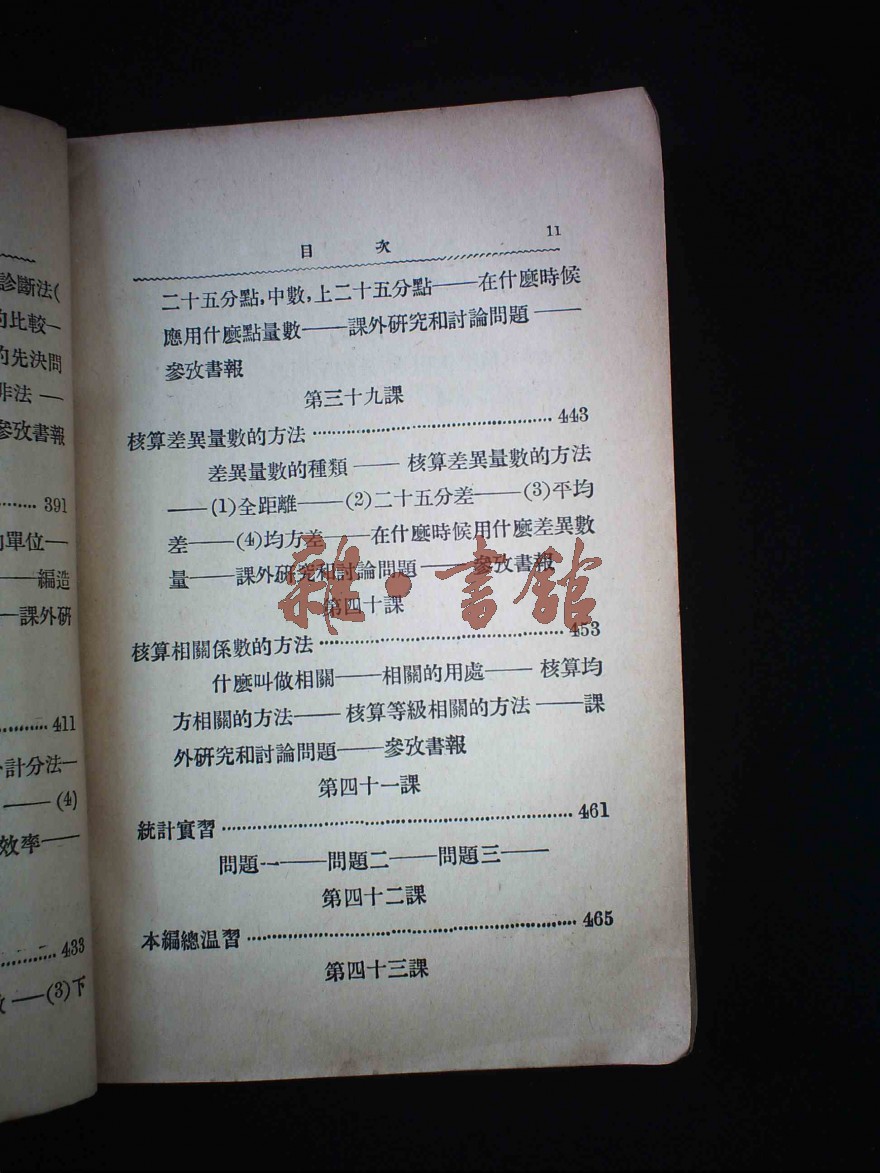 診斷法(
的比較—
的先決問
非法 —
參攷書報
391
的單位—
——編造
—課外研
411
計分法—
—— (4)
效率——
433
——(3)下
目 次 11
二十五分點,中數,上二十五分點——在什麼時候
應用什麼點量數——課外研究和討論問題——
參攷書報
第三十九課
核算差異量數的方法 443
差異量數的種類——核算差異量數的方法
——(1)全距離——(2)二十五分差——(3)平均
差——(4)均方差——在什麼時候用什麼差異數
量——課外研究和討論問題——參攷書報
雜·書館
第四十課
核算相關係數的方法 453
什麼叫做相關——相關的用處——核算均
方相關的方法——核算等級相關的方法——課
外研究和討論問題——參攷書報
第四十一課
統計實習 461
問題一——問題二——問題三——
第四十二課
本編總温習 465
第四十三課